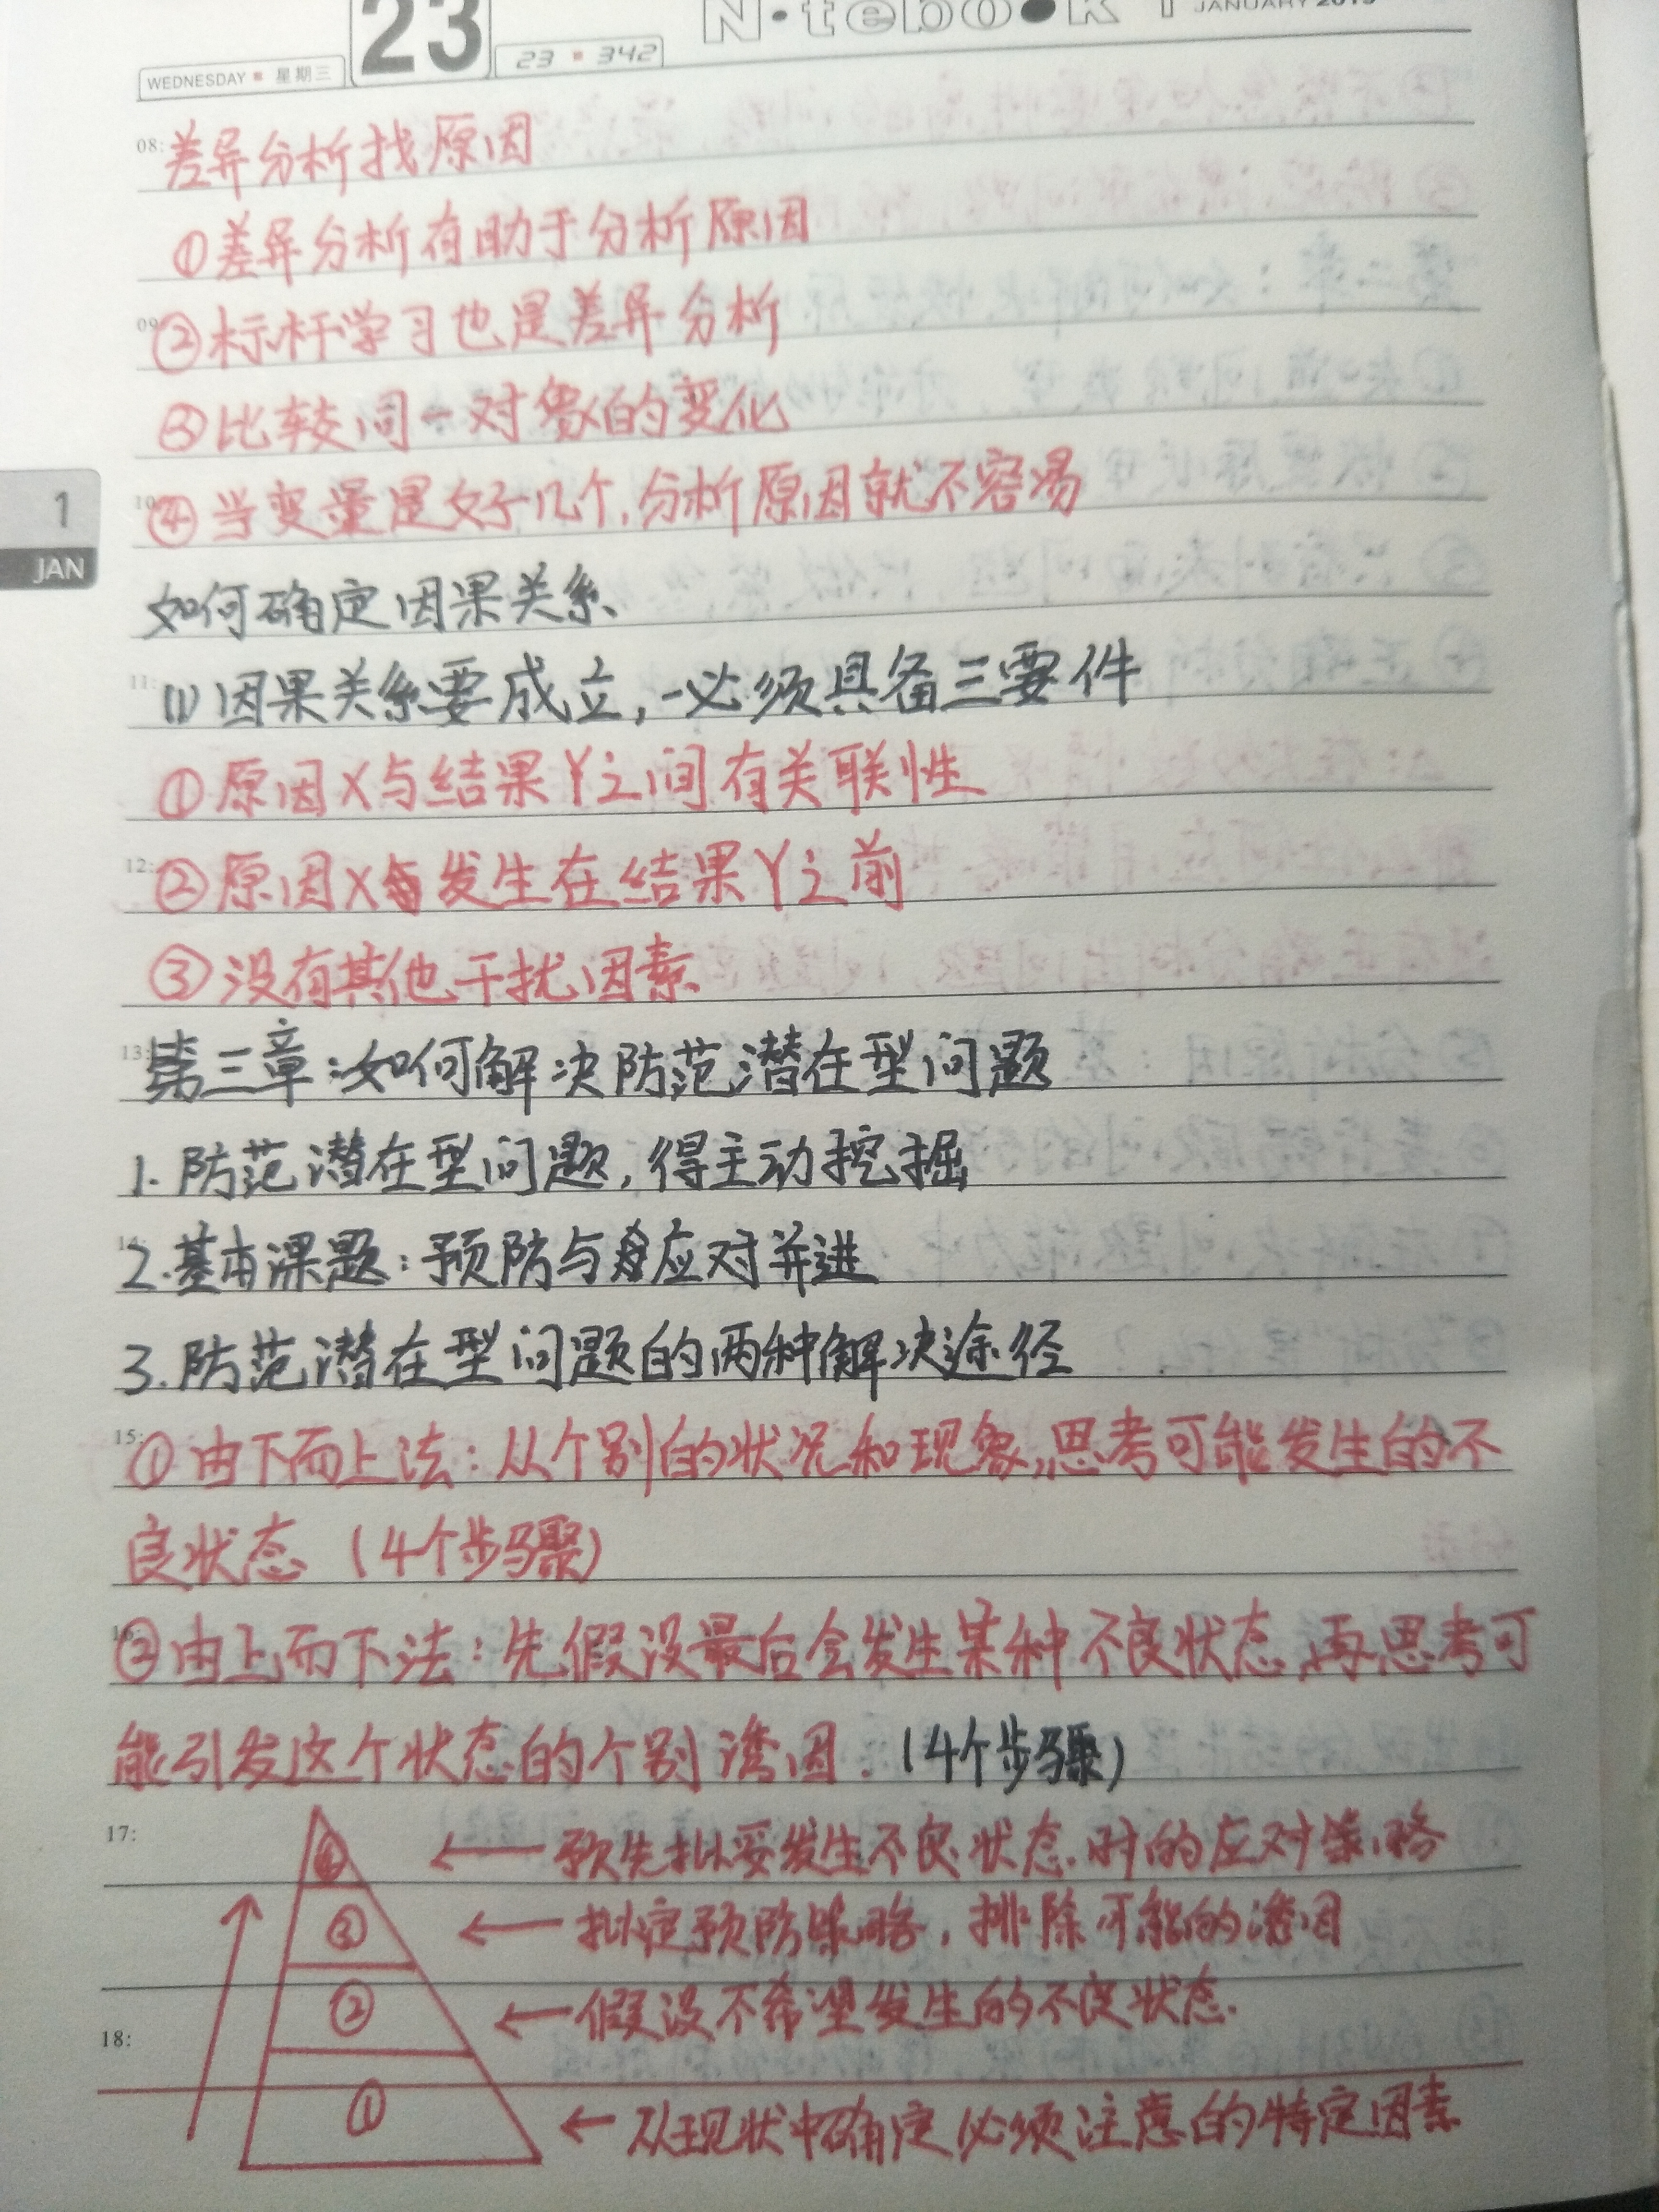 23
N·tebook 1 JANUARY 2019
WEDNESDAY 星期三
23 342
08: 差异分析找原因
①差异分析有助于分析原因
09 ②标杆学习也是差异分析
③比较同一对象的变化
10 ④当变量是好几个,分析原因就不容易
1
JAN
如何确定因果关系
11: (1)因果关系要成立,必须具备三要件
①原因X与结果Y之间有关联性
12: ②原因X发生在结果Y之前
③没有其他干扰因素
13: 第三章:如何解决防范潜在型问题
1.防范潜在型问题,得主动挖掘
14: 2.基本课题:预防与应对并进
3.防范潜在型问题的两种解决途径
15: ①由下而上法:从个别的状况和现象,思考可能发生的不
良状态(4个步骤)
16 ②由上而下法:先假设最后会发生某种不良状态,再思考可
能引发这个状态的个别诱因.(4个步骤)
17: ④ ←预先拟妥发生不良状态时的应对策略
③ ←拟定预防策略,排除可能的诱因
② ←假设不希望发生的不良状态.
18:
① ←从现状中确定必须注意的特定因素